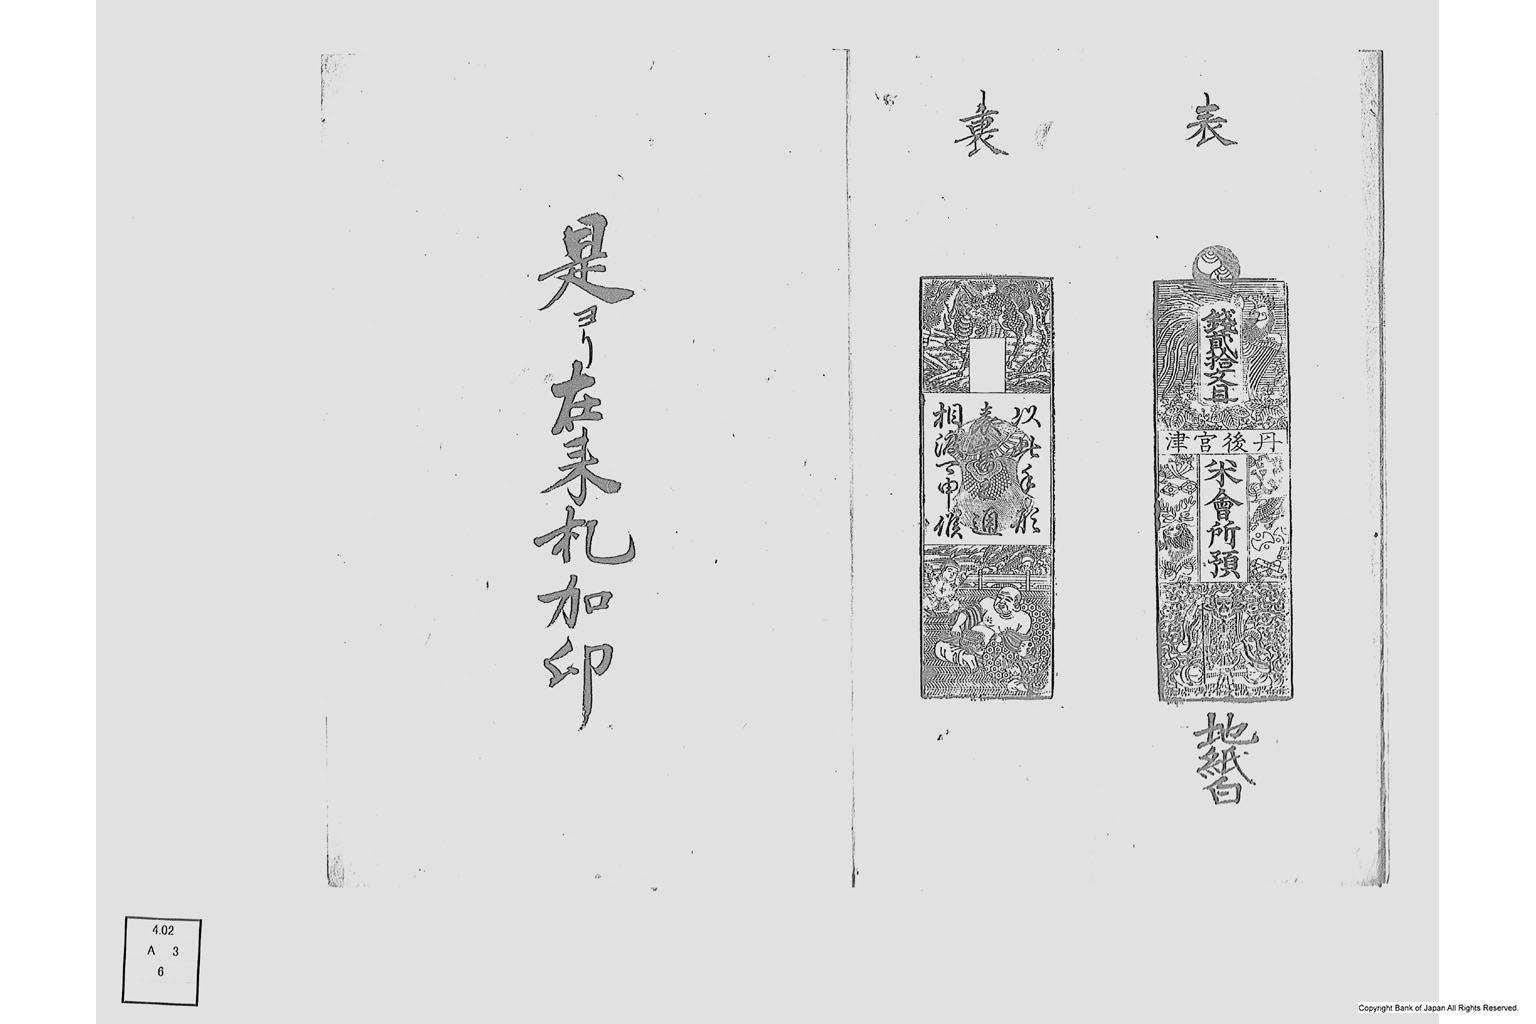 表
錢貳拾文目
丹後宮津
米會所預
地紙白
裏
以此手形
表書之通
相渡可申候
是ヨリ在来札加印
4.02
A 3
6
Copyright Bank of Japan All Rights Reserved.